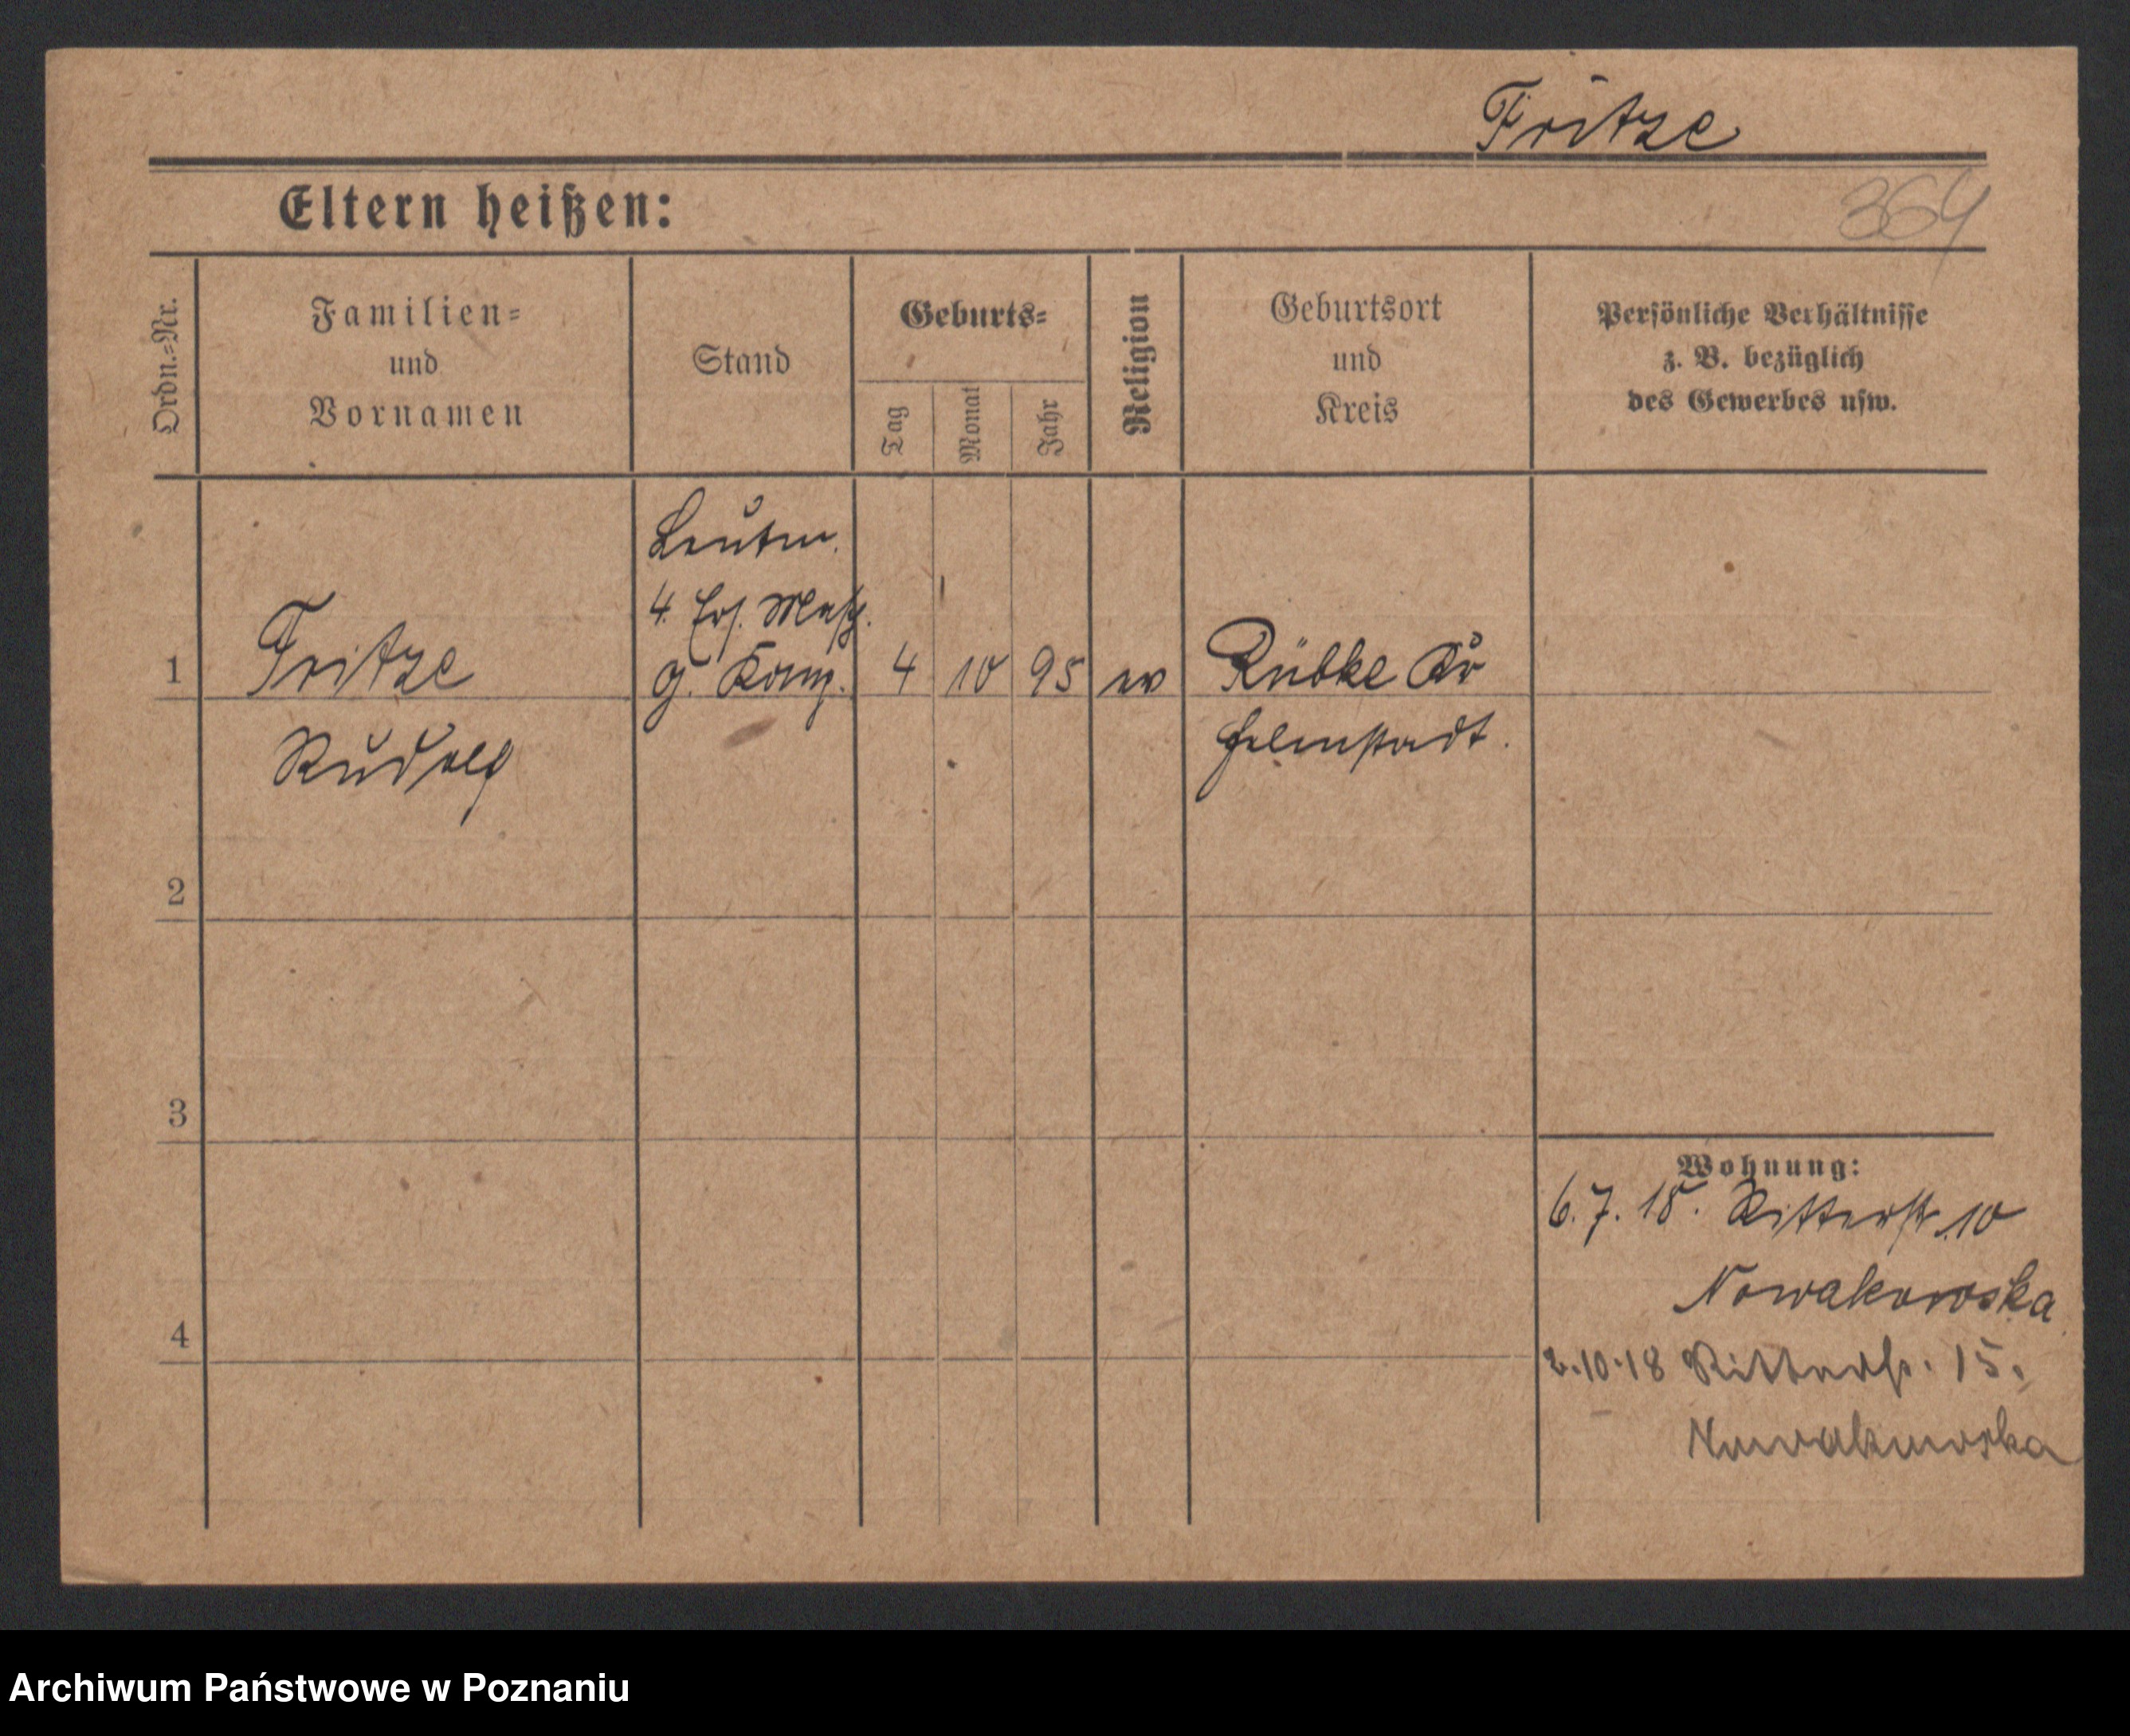 Fritze
Eltern heißen:
364
Ordn.=Nr.
Familien=
und
Vornamen
Stand
Geburts=
Tag
Monat
Jahr
Religion
Geburtsort
und
Kreis
Persönliche Verhältnisse
z. B. bezüglich
des Gewerbes usw.
1
Fritze
Rudolf
Leutn.
4. Ers. Masch.
G. Komp.
4
10
95
ev
Rübke Kr
Helmstadt.
2
3
4
Wohnung:
6. 7. 18. Ritterstr. 10
Nowakowska
2.10.18 Ritterstr. 15.
Nowakowska
Archiwum Państwowe w Poznaniu